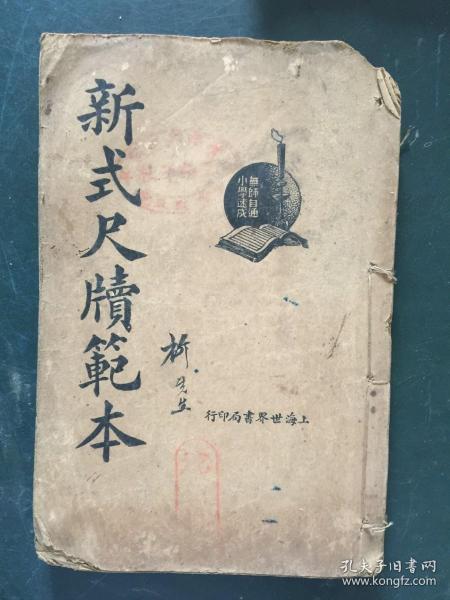 新式尺牘範本
無師自通
小學速成
先生
上海世界書局印行
孔夫子旧书网
www.kongfz.com